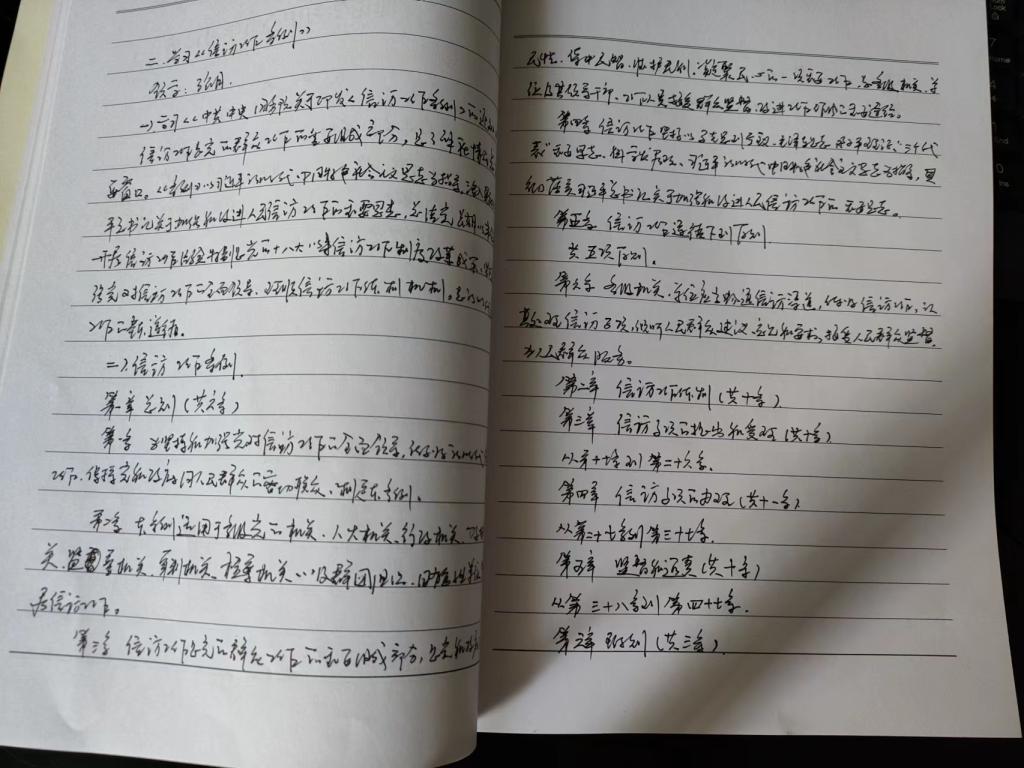 二、学习《信访工作条例》
一)学习《中共中央、国务院关于印发《信访工作条例》的通知
信访工作是党的群众工作的重要组成部分,是了解社情民意
要窗口。《条例》以习近平新时代中国特色社会主义思想为指导,深入贯
平总书记关于加强和改进人民信访工作的重要思想,总结党
开展信访工作的经验 特别是党的十八大以来信访工作制度改革成果,坚
持党对信访工作的全面领导、理顺信访工作体制机制。
工作的新道路。
二)信访工作条例。
第一章 总则(共六条)
第一条 为坚持和加强党对信访工作的全面领导,做好新时代
工作,保持党和政府同人民群众的密切联系,制定本条例。
第二条 本条例适用于各级党的机关、人大机关、行政机关、
关、监察机关、审判机关、检察机关以及群团组织、国有
展信访工作。
第三条 信访工作是党的群众工作的重要组成部分,是党和
民情、集中民智、维护民利、凝聚民心的一项重要工作,是各级机关、单
位及其领导干部、工作人员接受群众监督、改进工作作风的重要途径。
第四条 信访工作坚持以马克思列宁主义、毛泽东思想、邓小平理论、“三个代
表”重要思想、科学发展观、习近平新时代中国特色社会主义思想为指导,贯
彻落实习近平总书记关于加强和改进人民信访工作的重要思想。
第五条 信访工作遵循下列原则
共五项原则。
第六条 各级机关、单位应当畅通信访渠道,做好信访工作,认
真处理信访事项,倾听人民群众建议、意见和要求,接受人民群众监督,
为人民群众服务。
第二章 信访工作体制(共十条)
第三章 信访事项的提出和受理(共十条)
从第十七条到第二十六条。
第四章 信访事项的办理(共十一条)
从第二十七条到第三十七条。
第五章 监督和追责(共十条)
从第三十八条到第四十七条。
第六章 附则(共三条)